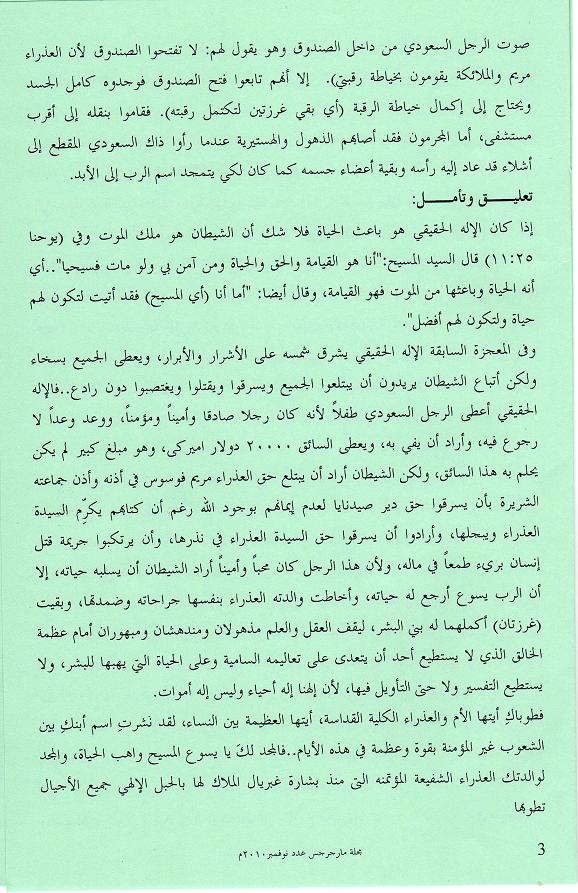 صوت الرجل السعودي من داخل الصندوق وهو يقول لهم: لا تفتحوا الصندوق لأن العذراء
مريم والملائكة يقومون بخياطة رقبتي). إلا أنهم تابعوا فتح الصندوق فوجدوه كامل الجسد
ويحتاج إلى إكمال خياطة الرقبة (أي بقي غرزتين لتكتمل رقبته). فقاموا بنقله إلى أقرب
مستشفى، أما المجرمون فقد أصابهم الذهول والهستيرية عندما رأوا ذاك السعودي المقطع إلى
أشلاء قد عاد إليه رأسه وبقية أعضاء جسمه كما كان لكي يتمجد اسم الرب إلى الأبد.
تعليـــق وتأمـــل:
إذا كان الإله الحقيقي هو باعث الحياة فلا شك أن الشيطان هو ملك الموت وفي (يوحنا
١١:٢٥) قال السيد المسيح:"أنا هو القيامة والحق والحياة ومن آمن بي ولو مات فسيحيا"..أي
أنه الحياة وباعثها من الموت فهو القيامة، وقال أيضا: "أما أنا (أي المسيح) فقد أتيت لتكون لهم
حياة ولتكون لهم أفضل".
وفى المعجزة السابقة الإله الحقيقي يشرق شمسه على الأشرار والأبرار، ويعطى الجميع بسخاء
ولكن أتباع الشيطان يريدون أن يبتلعوا الجميع ويسرقوا ويقتلوا ويغتصبوا دون رادع..فالإله
الحقيقي أعطى الرجل السعودي طفلاً لأنه كان رجلا صادقا وأميناً ومؤمناً، ووعد وعداً لا
رجوع فيه، وأراد أن يفي به، ويعطى السائق ٢٠٠٠٠ دولار اميركى، وهو مبلغ كبير لم يكن
يحلم به هذا السائق، ولكن الشيطان أراد أن يبتلع حق العذراء مريم فوسوس في أذنه وأذن جماعته
الشريرة بأن يسرقوا حق دير صيدنايا لعدم إيمانهم بوجود الله رغم أن كتابهم يكرِّم السيدة
العذراء ويبجلها، وأرادوا أن يسرقوا حق السيدة العذراء في نذرها، وأن يرتكبوا جريمة قتل
إنسان بريء طمعاً في ماله، ولأن هذا الرجل كان محباً وأميناً أراد الشيطان أن يسلبه حياته، إلا
أن الرب يسوع أرجع له حياته، وأخاطت والدته العذراء بنفسها جراحاته وضمدتها، وبقيت
(غرزتان) أكملهما له بني البشر، ليقف العقل والعلم مذهولان ومندهشان ومبهوران أمام عظمة
الخالق الذي لا يستطيع أحد أن يتعدى على تعاليمه السامية وعلى الحياة التي يهبها للبشر، ولا
يستطيع التفسير ولا حتى التأويل فيها، لأن إلهنا إله أحياء وليس إله أموات.
فطوباكِ أيتها الأم والعذراء الكلية القداسة، أيتها العظيمة بين النساء، لقد نَشرتِ اسم أبنكِ بين
الشعوب غير المؤمنة بقوة وعظمة في هذه الأيام..فالمجد لكَ يا يسوع المسيح واهب الحياة، والمجد
لوالدتك العذراء الشفيعة المؤتمنه التى منذ بشارة غبريال الملاك لها بالحبل الإلهي جميع الأجيال
تطوبها
3
مجلة مارجرجس عدد نوفمبر٢٠١٠م